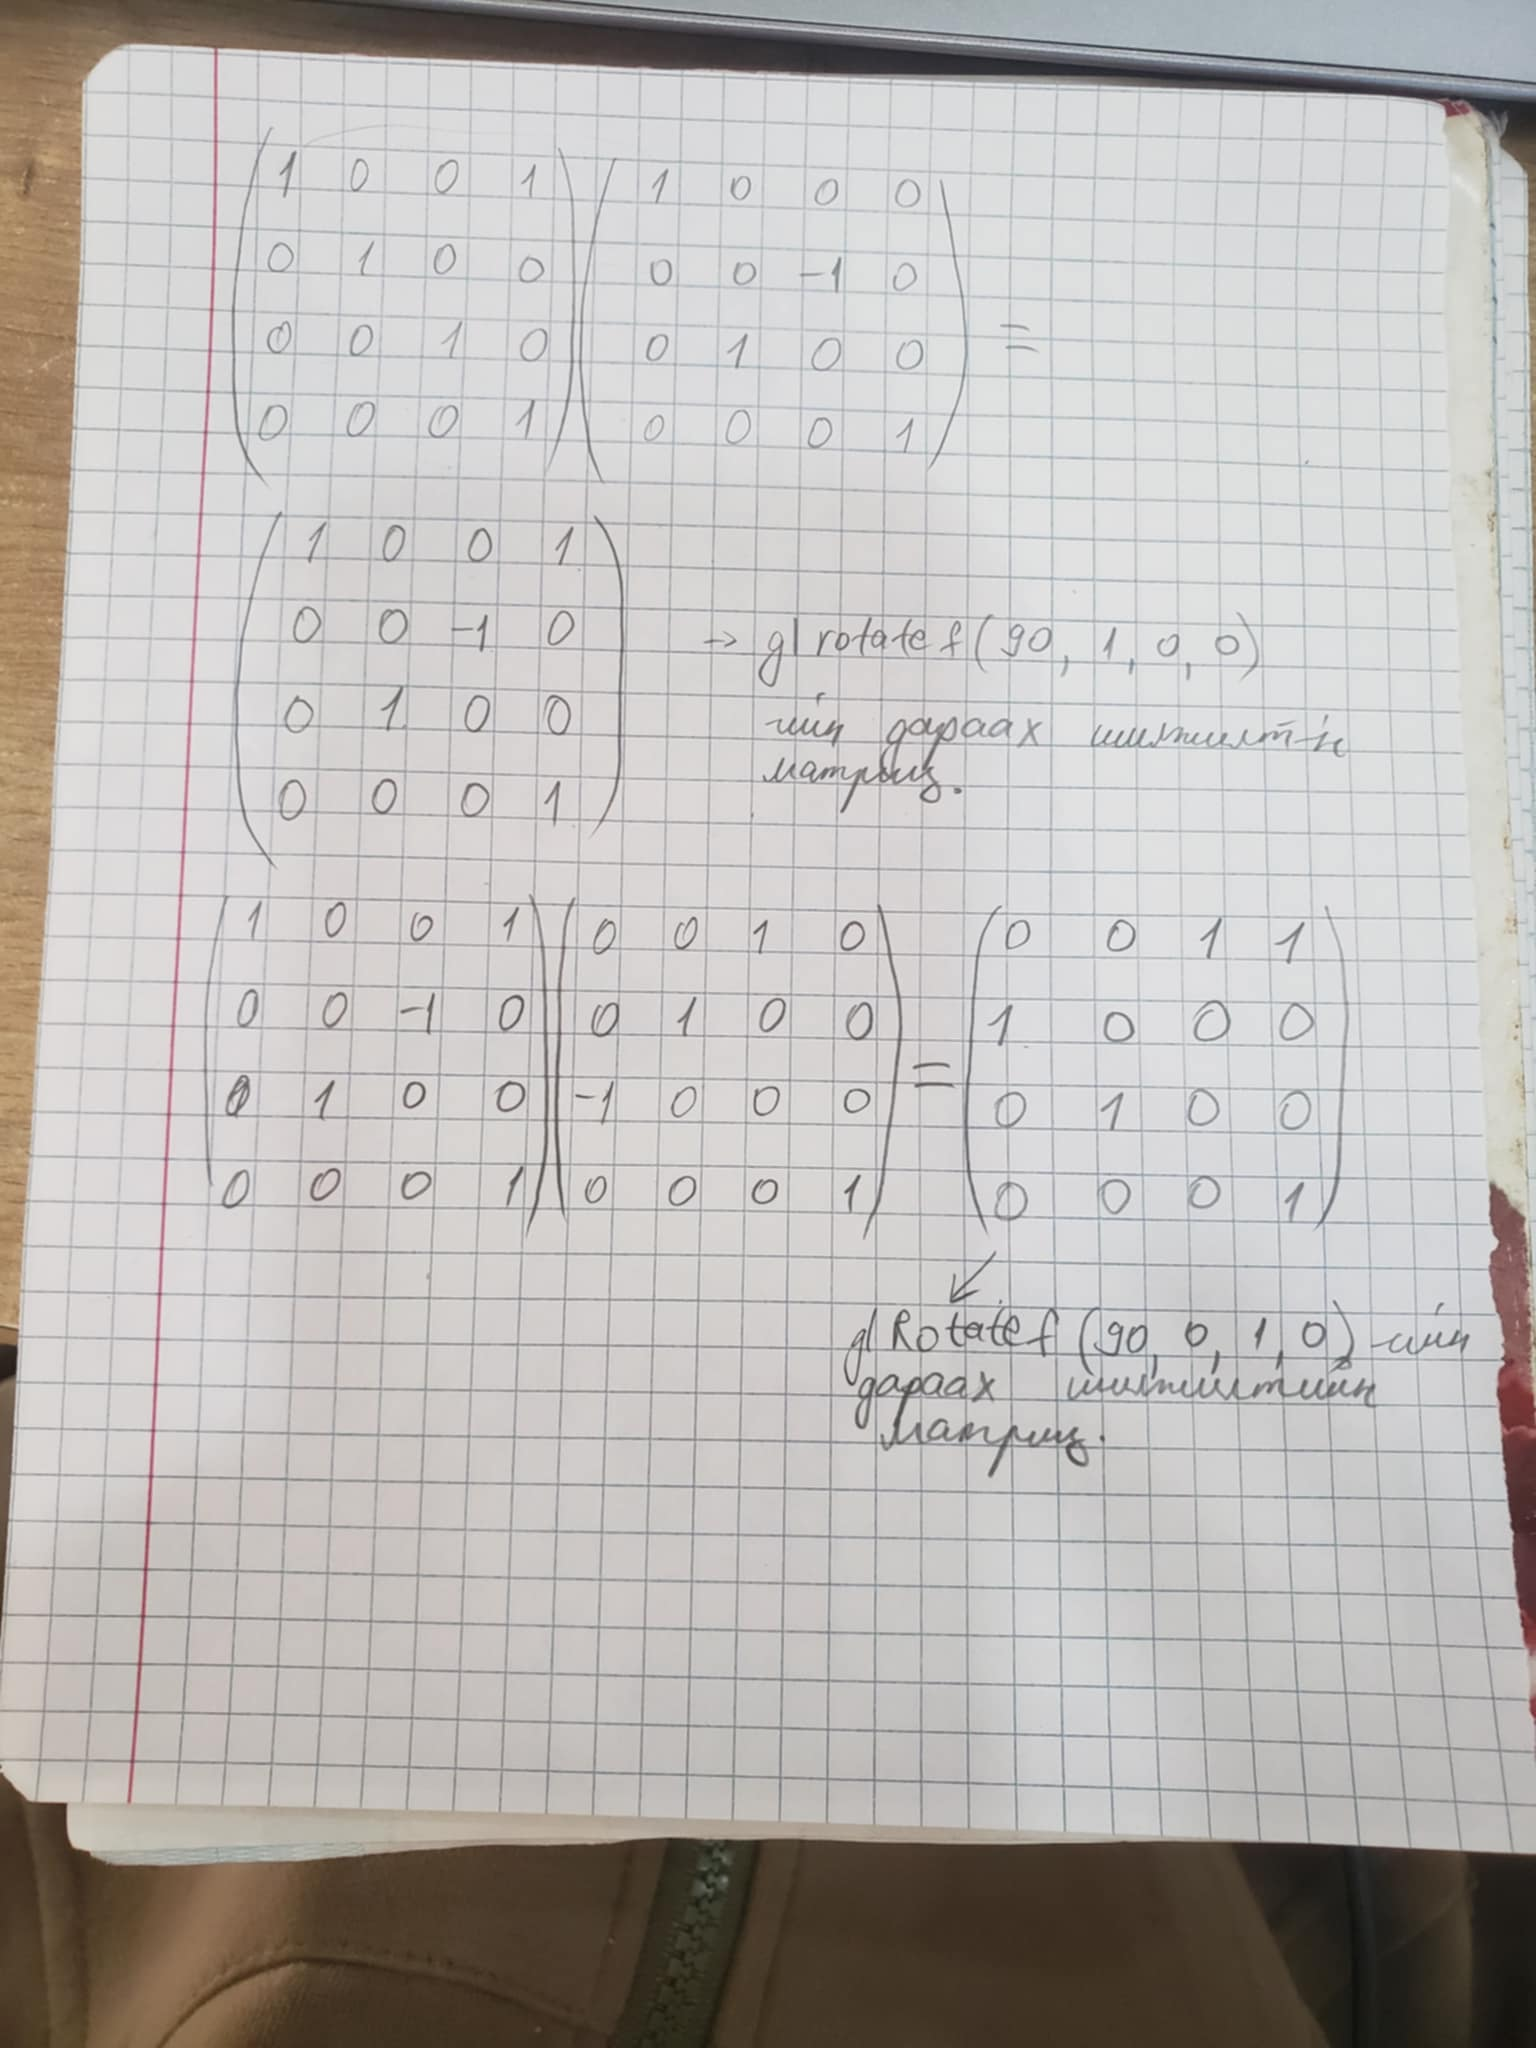 1 0 0 1 1 0 0 0
0 1 0 0 0 0 -1 0
0 0 1 0 0 1 0 0 =
0 0 0 1 0 0 0 1
1 0 0 1
0 0 -1 0 → gl rotate f (90, 1, 0, 0)
0 1 0 0 -ийн дараах шилжилт-н
матриц.
0 0 0 1
1 0 0 1 0 0 1 0 0 0 1 1
0 0 -1 0 0 1 0 0 1 0 0 0
0 1 0 0 -1 0 0 0 = 0 1 0 0
0 0 0 1 0 0 0 1 0 0 0 1
gl Rotate f (90, 0, 1, 0) -ийн
дараах шилжилтийн
матриц.